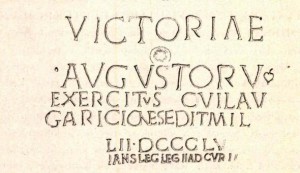 VICTORIAE
·AVGVSTORV
EXERCITVS CVILAV
GARICIONESEDITMIL
LII·DCCCLV
IANSLEGLEGIIADCVRI